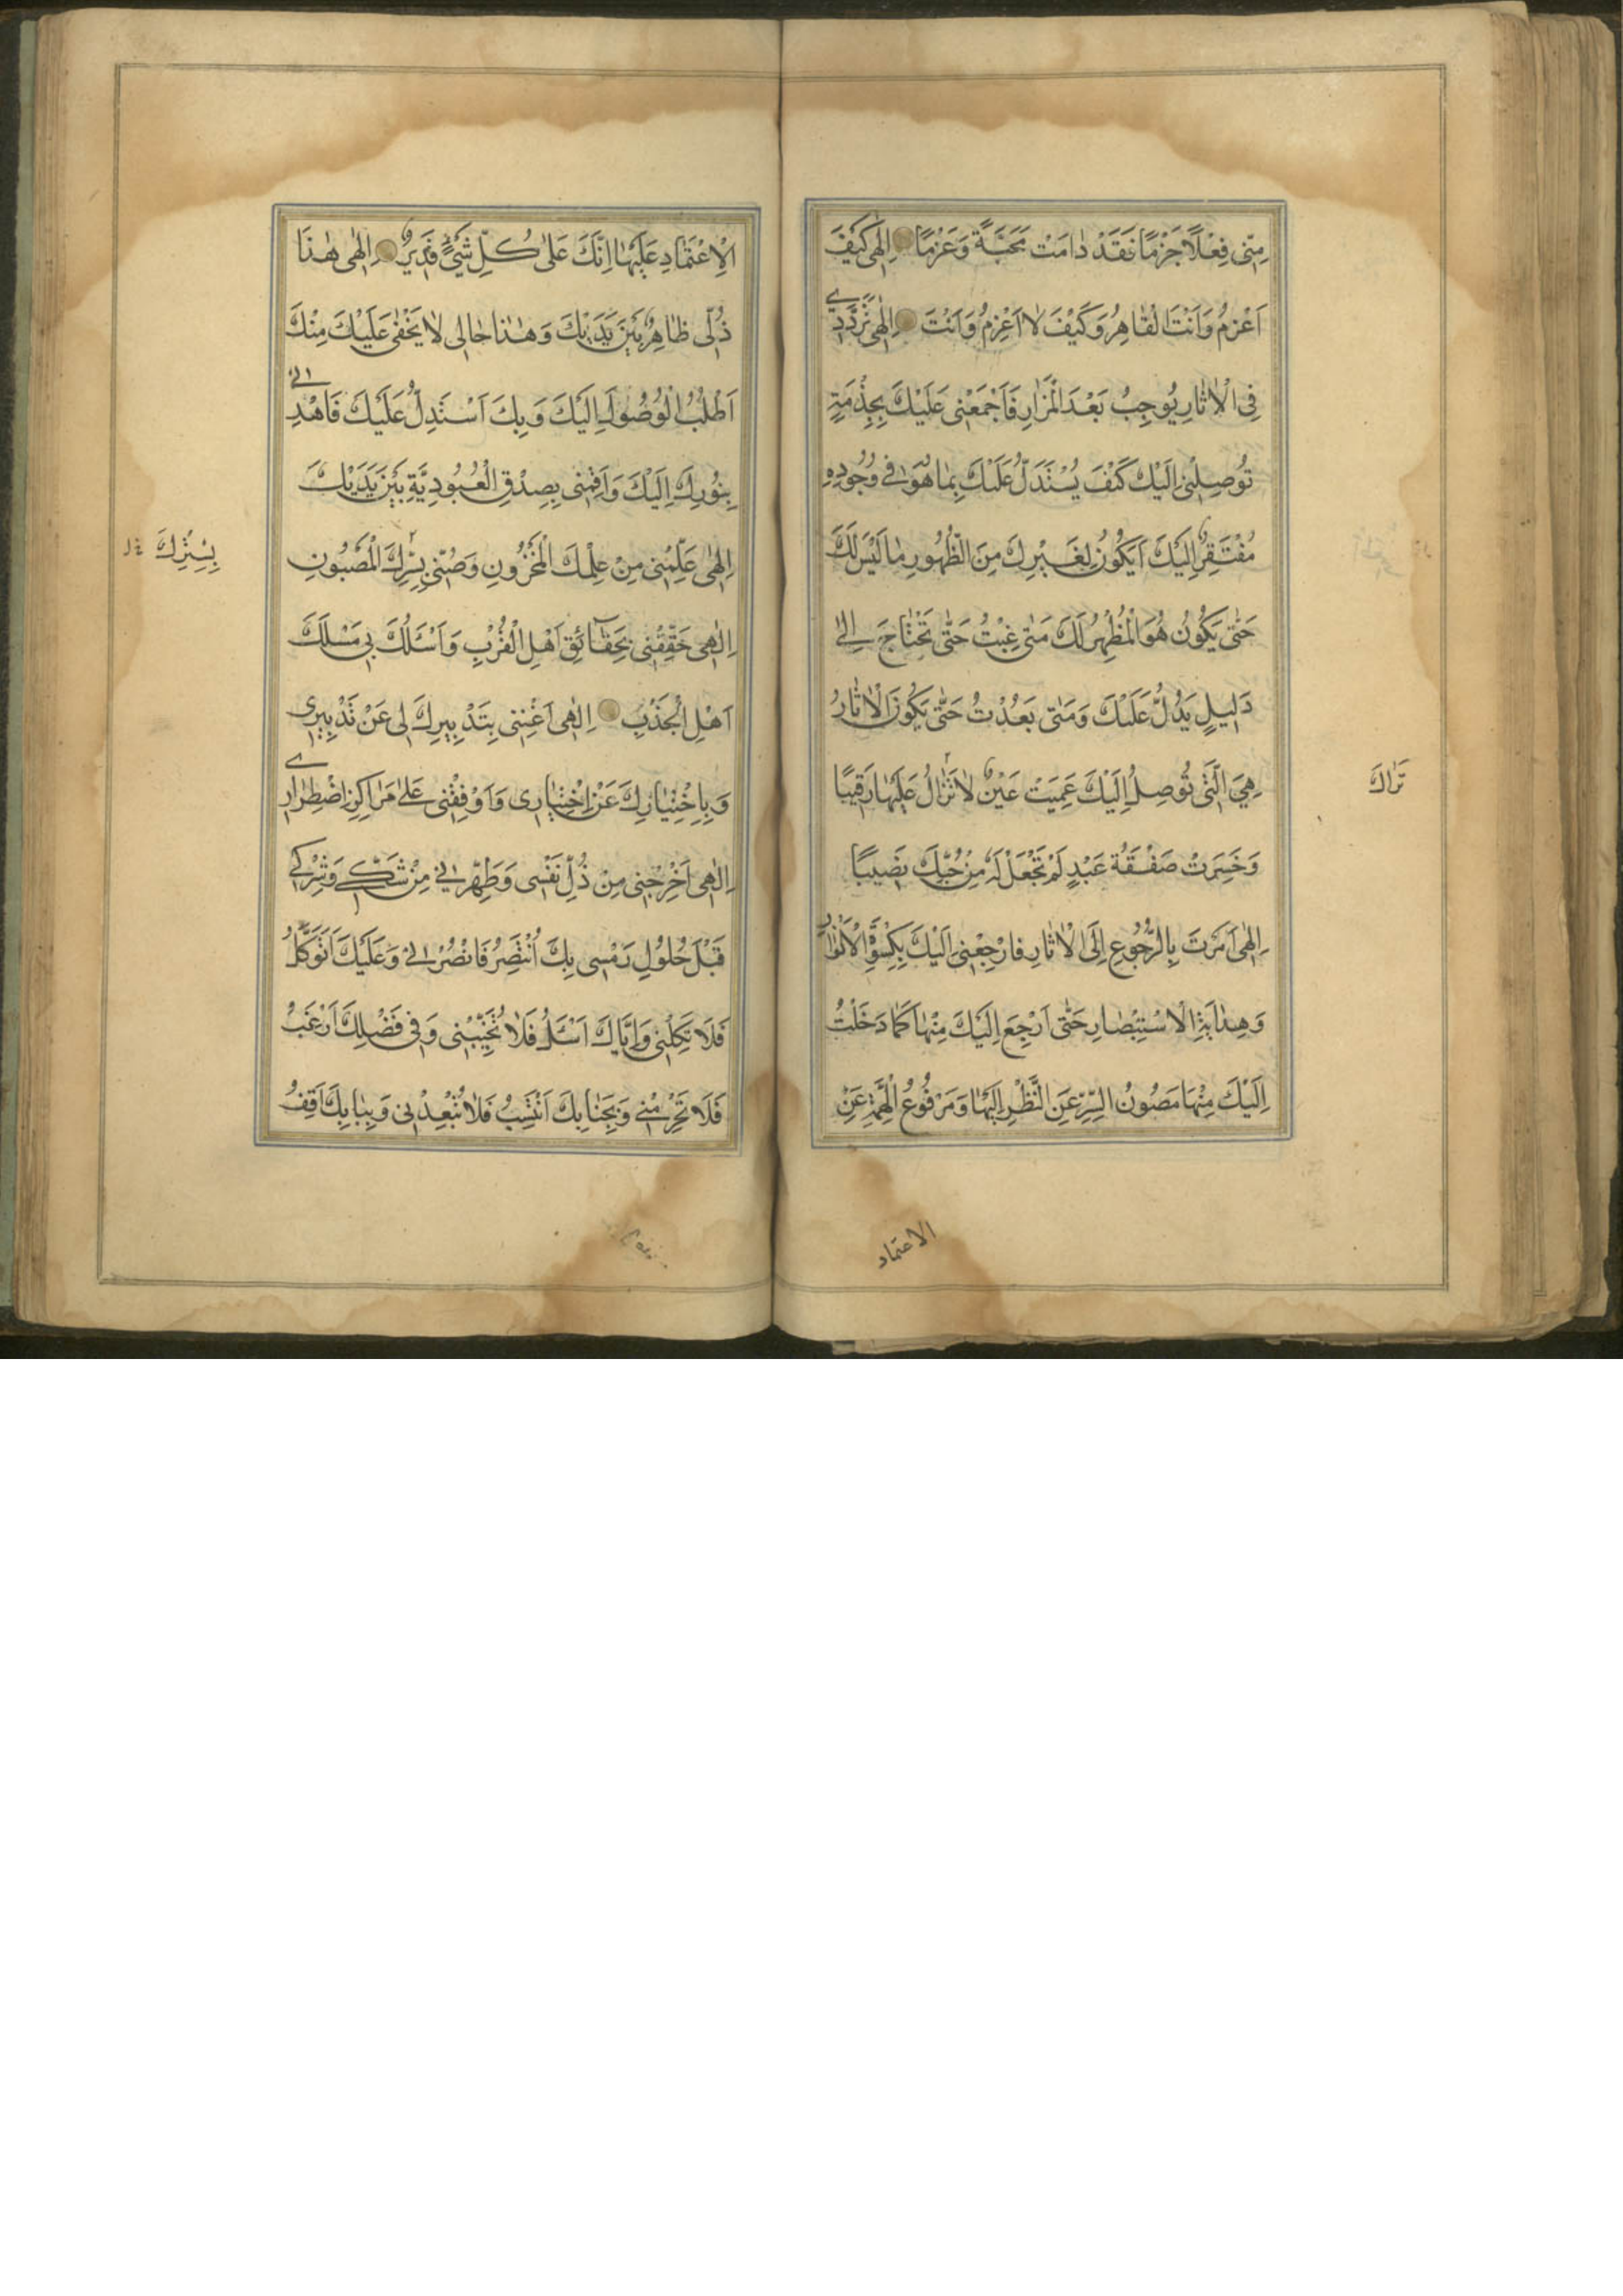 مِنّى فِعْلًا جَزْمًا فَقَدْ دٰامَتْ مَحَبَّةً وَعَزْمًا اِلٰهى كَيْفَ
اَعْزِمُ وَاَنْتَ الْقٰاهِرُ وَكَيْفَ لا اَعْزِمُ وَاَنْتَ اِلٰهى تَرَدُّدِي
فِى الْاٰثٰارِ يُوجِبُ بَعْدَ الْمَزٰارِ فَاَجْمَعْنى عَلَيْكَ بِخِذْمَةٍ
تُوصِلُنى اِلَيْكَ كَيْفَ يُسْتَدَلُّ عَلَيْكَ بِمٰا هُوَ فى وُجُودِهِ
مُفْتَقِرٌ اِلَيْكَ اَيَكُونُ لِغَيْرِكَ مِنَ الظُّهُورِ مٰا لَيْسَ لَكَ
حَتّٰى يَكُونَ هُوَ الْمُظْهِرُ لَكَ مَتٰى غِبْتَ حَتّٰى تَحْتٰاجَ اِلىٰ
دَليلٍ يَدُلُّ عَلَيْكَ وَمَتٰى بَعُدْتَ حَتّٰى يَكُونَ الْاٰثٰارُ
هِيَ الَّتى تُوصِلُ اِلَيْكَ عَمِيَتْ عَيْنٌ لٰا تَزٰالُ عَلَيْهٰا رَقيبًا
تَرٰاكَ
وَخَسِرَتْ صَفْقَةُ عَبْدٍ لَمْ تَجْعَلْ لَهُ مِنْ حُبِّكَ نَصيبًا
اِلٰهى اَمَرْتَ بِالرُّجُوعِ اِلَى الْاٰثٰارِ فٰارْجِعْنى اِلَيْكَ بِكِسْوَةِ الْاَنْوٰارِ
وَهِدٰايَةِ الْاسْتِبْصٰارِ حَتّٰى اَرْجِعَ اِلَيْكَ مِنْهٰا كَمٰا دَخَلْتُ
اِلَيْكَ مِنْهٰا مَصُونَ السِّرِّ عَنِ النَّظَرِ اِلَيْهٰا وَمَرْفُوعَ الْهِمَّةِ عَنِ
الاعتماد
الْاِعْتِمٰادِ عَلَيْهٰا اِنَّكَ عَلىٰ كُلِّ شَيْءٍ قَديرٌ اِلٰهى هٰذَا
ذُلّى ظٰاهِرٌ بَيْنَ يَدَيْكَ وَهٰذٰا حٰالى لٰا يَخْفٰى عَلَيْكَ مِنْكَ
اَطْلُبُ الْوُصُولَ اِلَيْكَ وَبِكَ اَسْتَدِلُّ عَلَيْكَ فَاهْدِنى
بِنُورِكَ اِلَيْكَ وَاَقِمْنى بِصِدْقِ الْعُبُودِيَّةِ بَيْنَ يَدَيْكَ
اِلٰهى عَلِّمْنى مِنْ عِلْمِكَ الْمَخْزُونِ وَصُنّى بِسِرِّكَ الْمَصُونِ
بِسِتْرِكَ
اِلٰهى حَقِّقْنى بِحَقٰائِقِ اَهْلِ الْقُرْبِ وَاَسْئَلُكَ بى مَسْلَكَ
اَهْلِ الْجَذْبِ اِلٰهى اَغْنِنى بِتَدْبيرِكَ لى عَنْ تَدْبيرى
وَبِاِخْتِيٰارِكَ عَنْ اِخْتِيٰارى وَاَوْقِفْنى عَلىٰ مَرٰاكِزِ اضْطِرٰارِي
اِلٰهى اَخْرِجْنى مِنْ ذُلِّ نَفْسى وَطَهِّرْنى مِنْ شَكّى وَشِرْكى
قَبْلَ حُلُولِ رَمْسى بِكَ اَنْتَصِرُ فَانْصُرْنى وَعَلَيْكَ اَتَوَكَّلُ
فَلَا تَكِلْنى وَاِيّٰاكَ اَسْئَلُ فَلٰا تُخَيِّبْنى وَفى فَضْلِكَ اَرْغَبُ
فَلَا تَحْرِمْنى وَبِجَنٰابِكَ اَنْتَسِبُ فَلٰا تُبْعِدْنى وَبِبٰابِكَ اَقِفُ